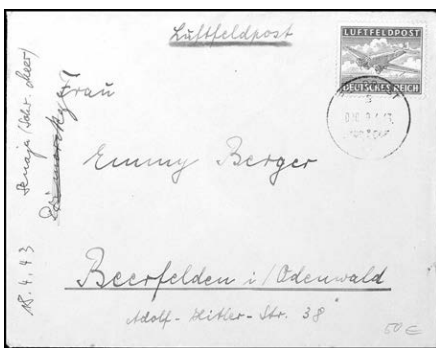 Luftfeldpost
LUFTFELDPOST
DEUTSCHES REICH
Frau
Emmy Berger
Beerfelden i/Odenwald
Adolf-Hitler-Str. 38
18.4.43
50 €